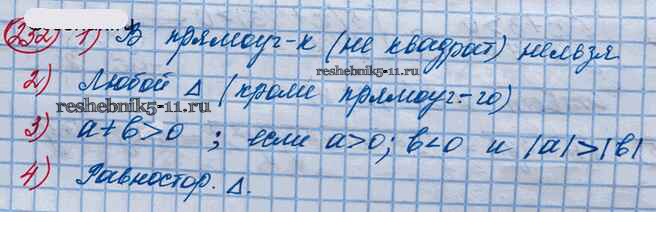 232) 1) В прямоуг-к (не квадрат) нельзя
reshebnik5-11.ru
2) Любой Δ (кроме прямоуг-го)
reshebnik5-11.ru
3) a+b>0 ; если a>0; b<0 и |a|>|b|
4) Равностор. Δ.